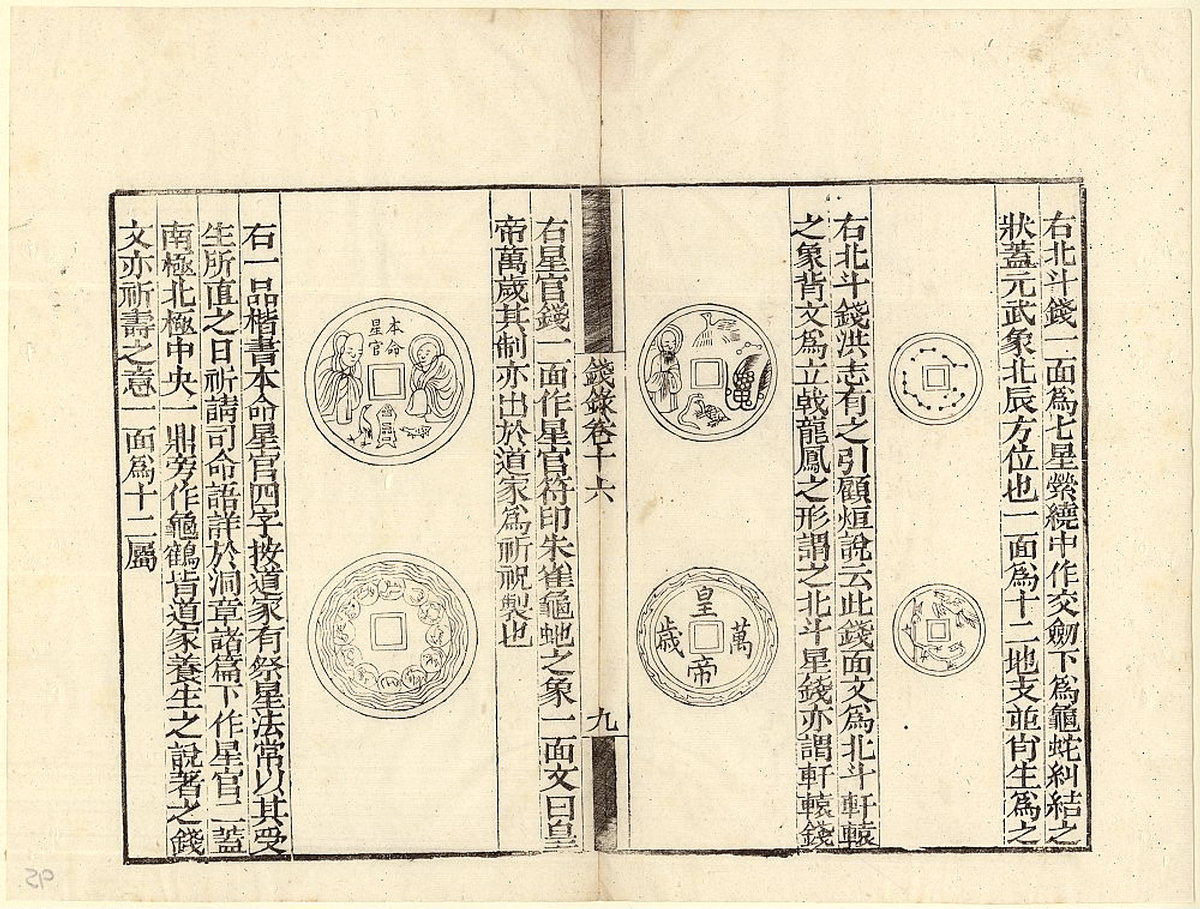 右北斗錢一面爲七星縈繞中作交劒下爲龜蛇糾結之
狀蓋元武象北辰方位也一面爲十二地支並肖生爲之
右北斗錢洪志有之引顧烜說云此錢面文爲北斗軒轅
之象背文爲立戟龍鳳之形謂之北斗星錢亦謂軒轅錢
皇帝萬歲
錢錄卷十六
九
右星官錢一面作星官符印朱雀龜虵之象一面文曰皇
帝萬歲其制亦出於道家爲祈祝製也
本命星官
右一品楷書本命星官四字按道家有祭星法常以其受
生所直之日祈請司命語詳於洞章諸篇下作星官二蓋
南極北極中央一鼎旁作龜鶴皆道家養生之說著之錢
文亦祈壽之意一面爲十二屬